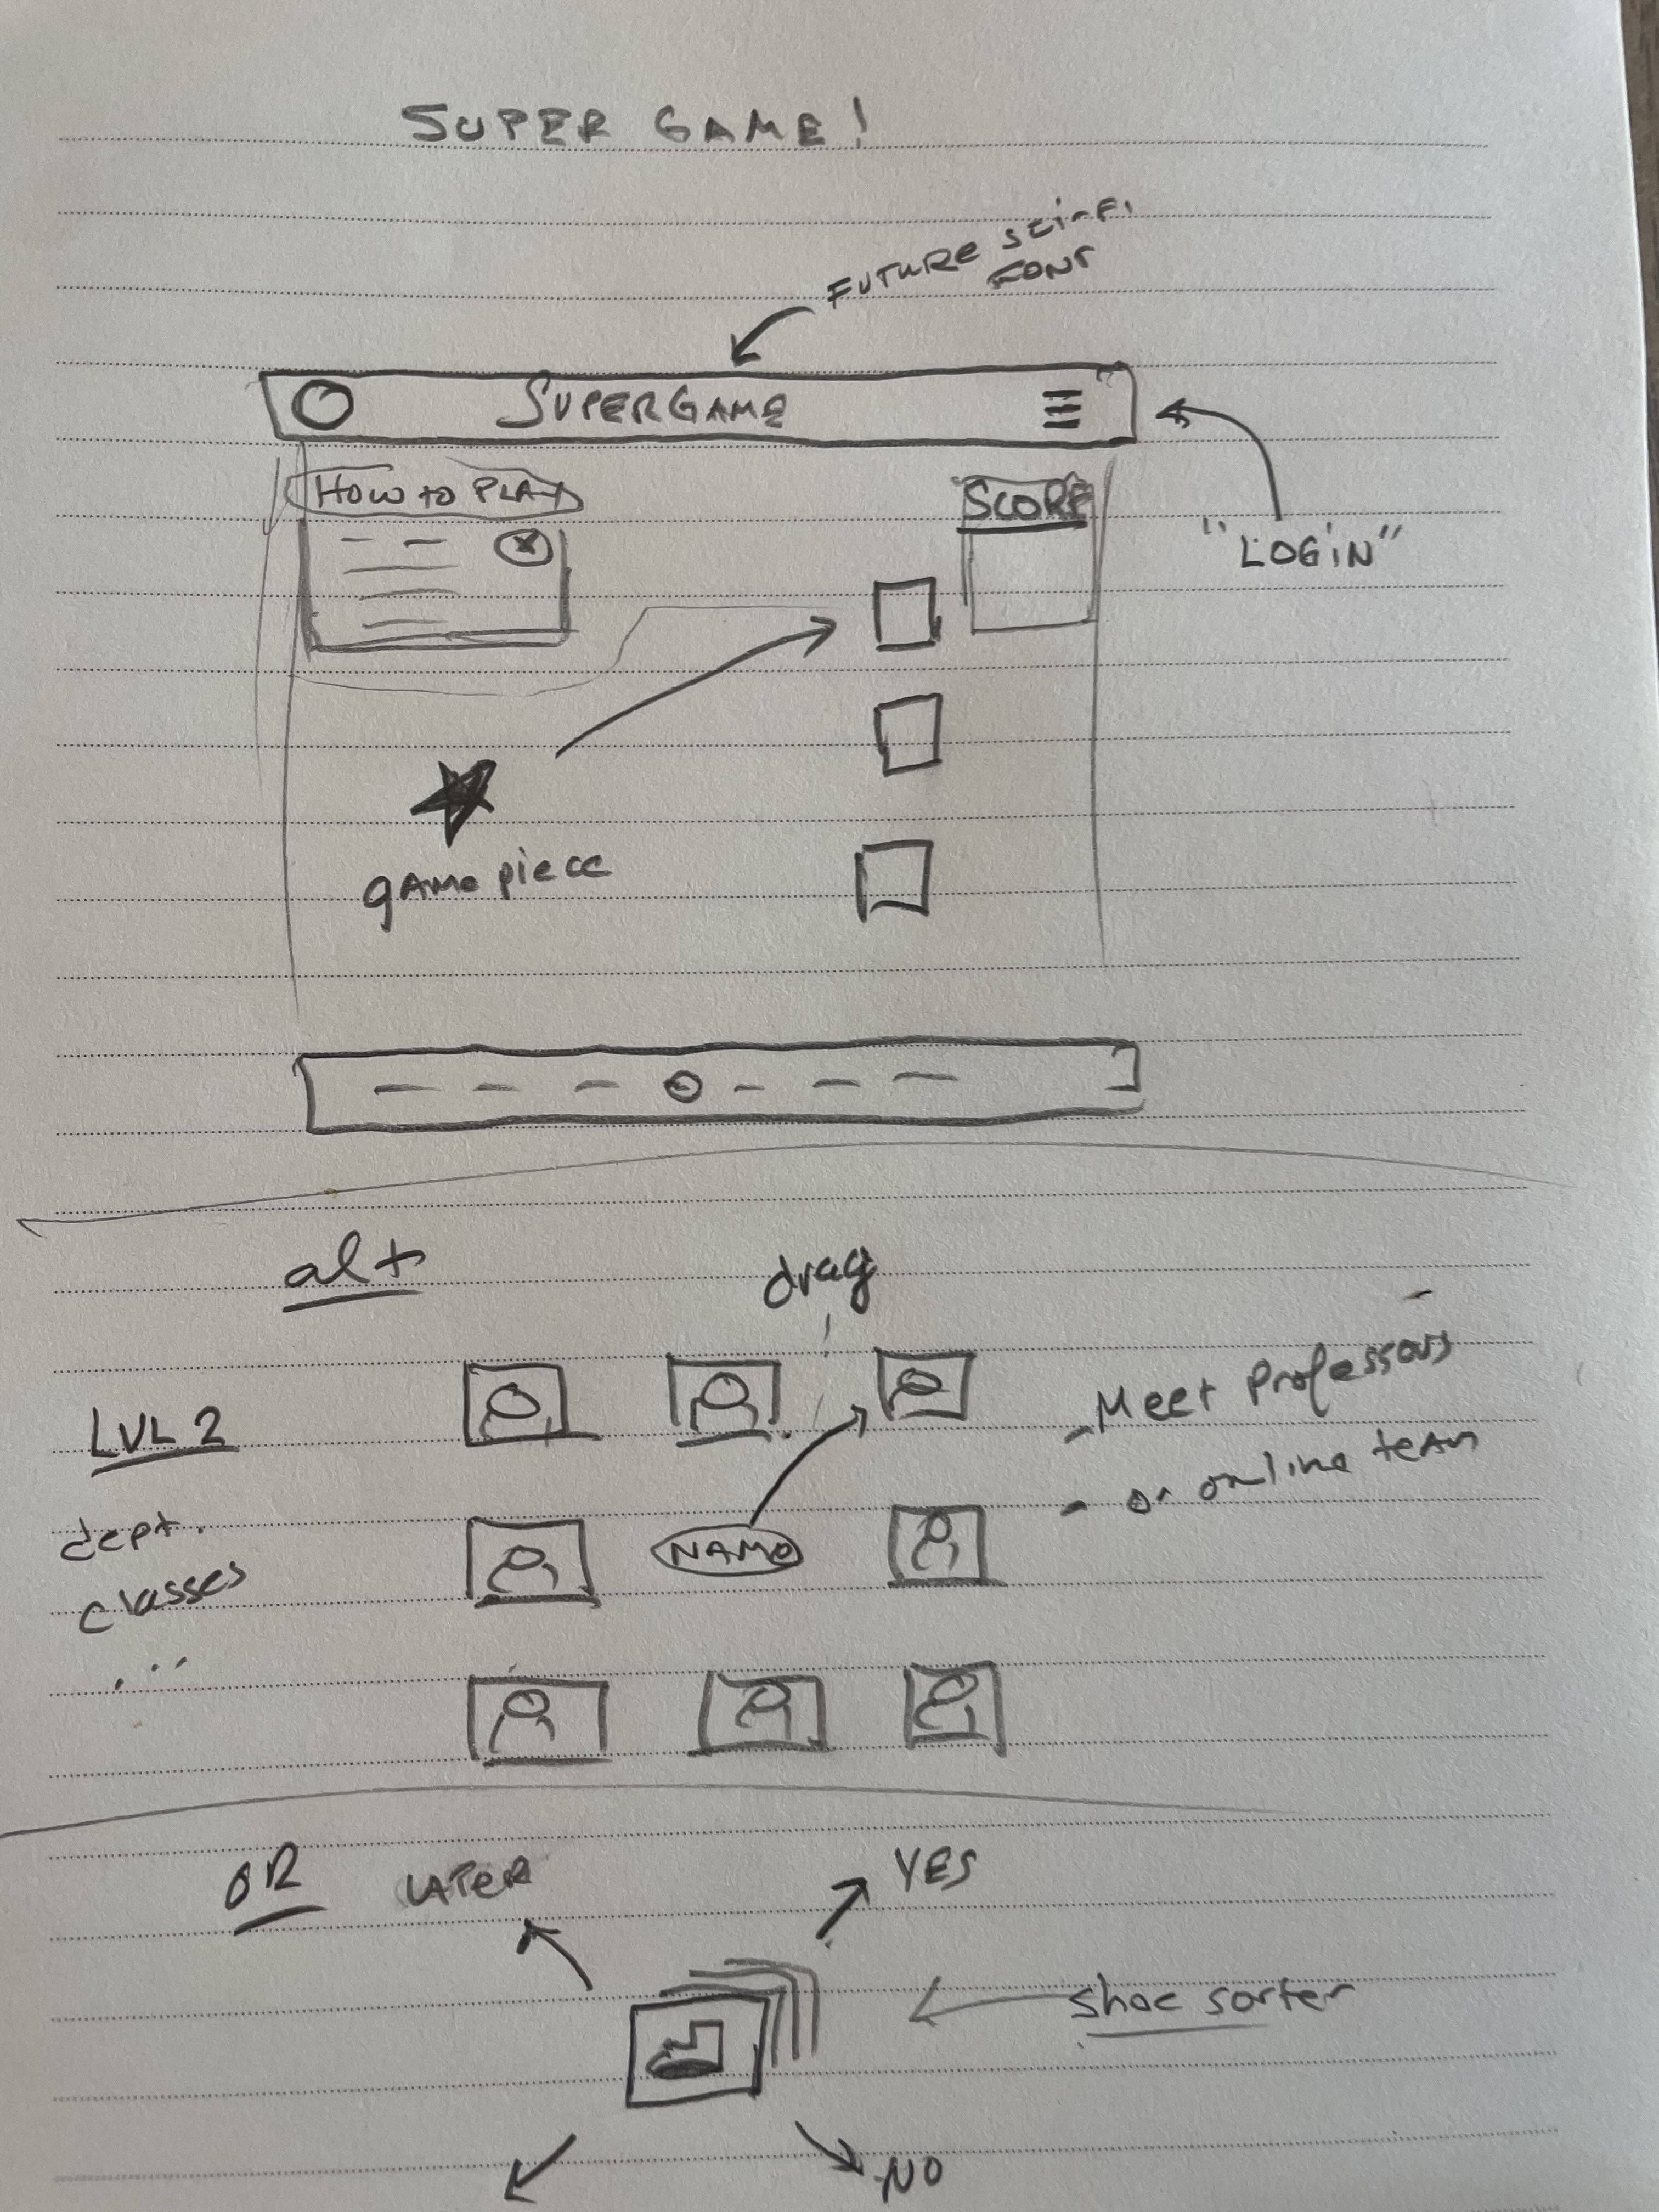 SUPER GAME!
FUTURE SCI-FI
FONT
SUPERGAME
HOW TO PLAY
SCORE
"LOGIN"
game piece
alt
drag
LVL 2
- Meet Professors
- or online team
dept.
classes
NAME
OR
LATER
YES
shoe sorter
NO